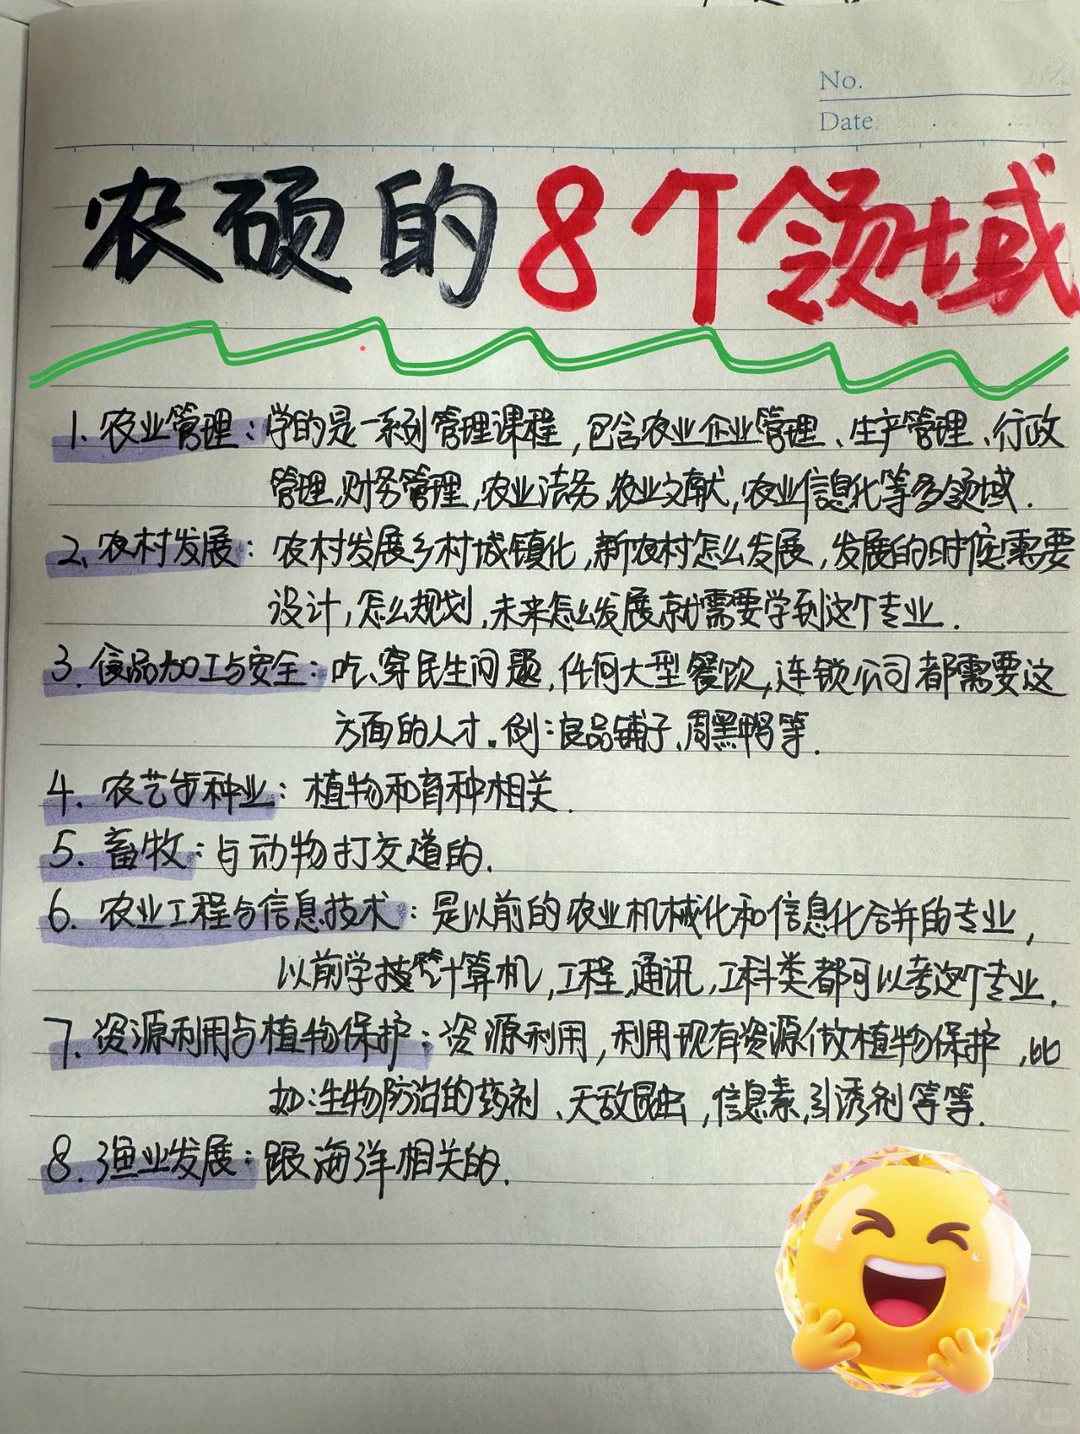 No.
Date
农硕的8个领域
1. 农业管理：学的是一系列管理课程，包含农业企业管理、生产管理、行政
管理,财务管理,农业法务,农业文献,农业信息化等多领域.
2. 农村发展：农村发展乡村城镇化,新农村怎么发展,发展的时候需要
设计,怎么规划,未来怎么发展就需要学到这个专业.
3. 食品加工与安全：吃、穿民生问题,任何大型餐饮,连锁公司都需要这
方面的人才。例：良品铺子、周黑鸭等.
4. 农艺与种业：植物和育种相关.
5. 畜牧：与动物打交道的.
6. 农业工程与信息技术：是以前的农业机械化和信息化合并的专业,
以前学计算机,工程,通讯,工科类都可以考这个专业.
7. 资源利用与植物保护：资源利用,利用现有资源做植物保护,比
如:生物防治的药剂、天敌昆虫,信息素,引诱剂等等.
8. 渔业发展：跟海洋相关的.